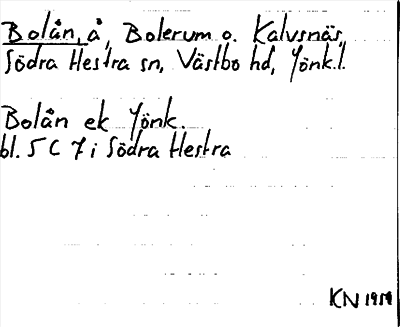 Bolån, å, Bolerum o. Kalvsnäs,
Södra Hestra sn, Västbo hd, Jönk.l.
Bolån ek Jönk.
bl. 5 C 7 i Södra Hestra
KN